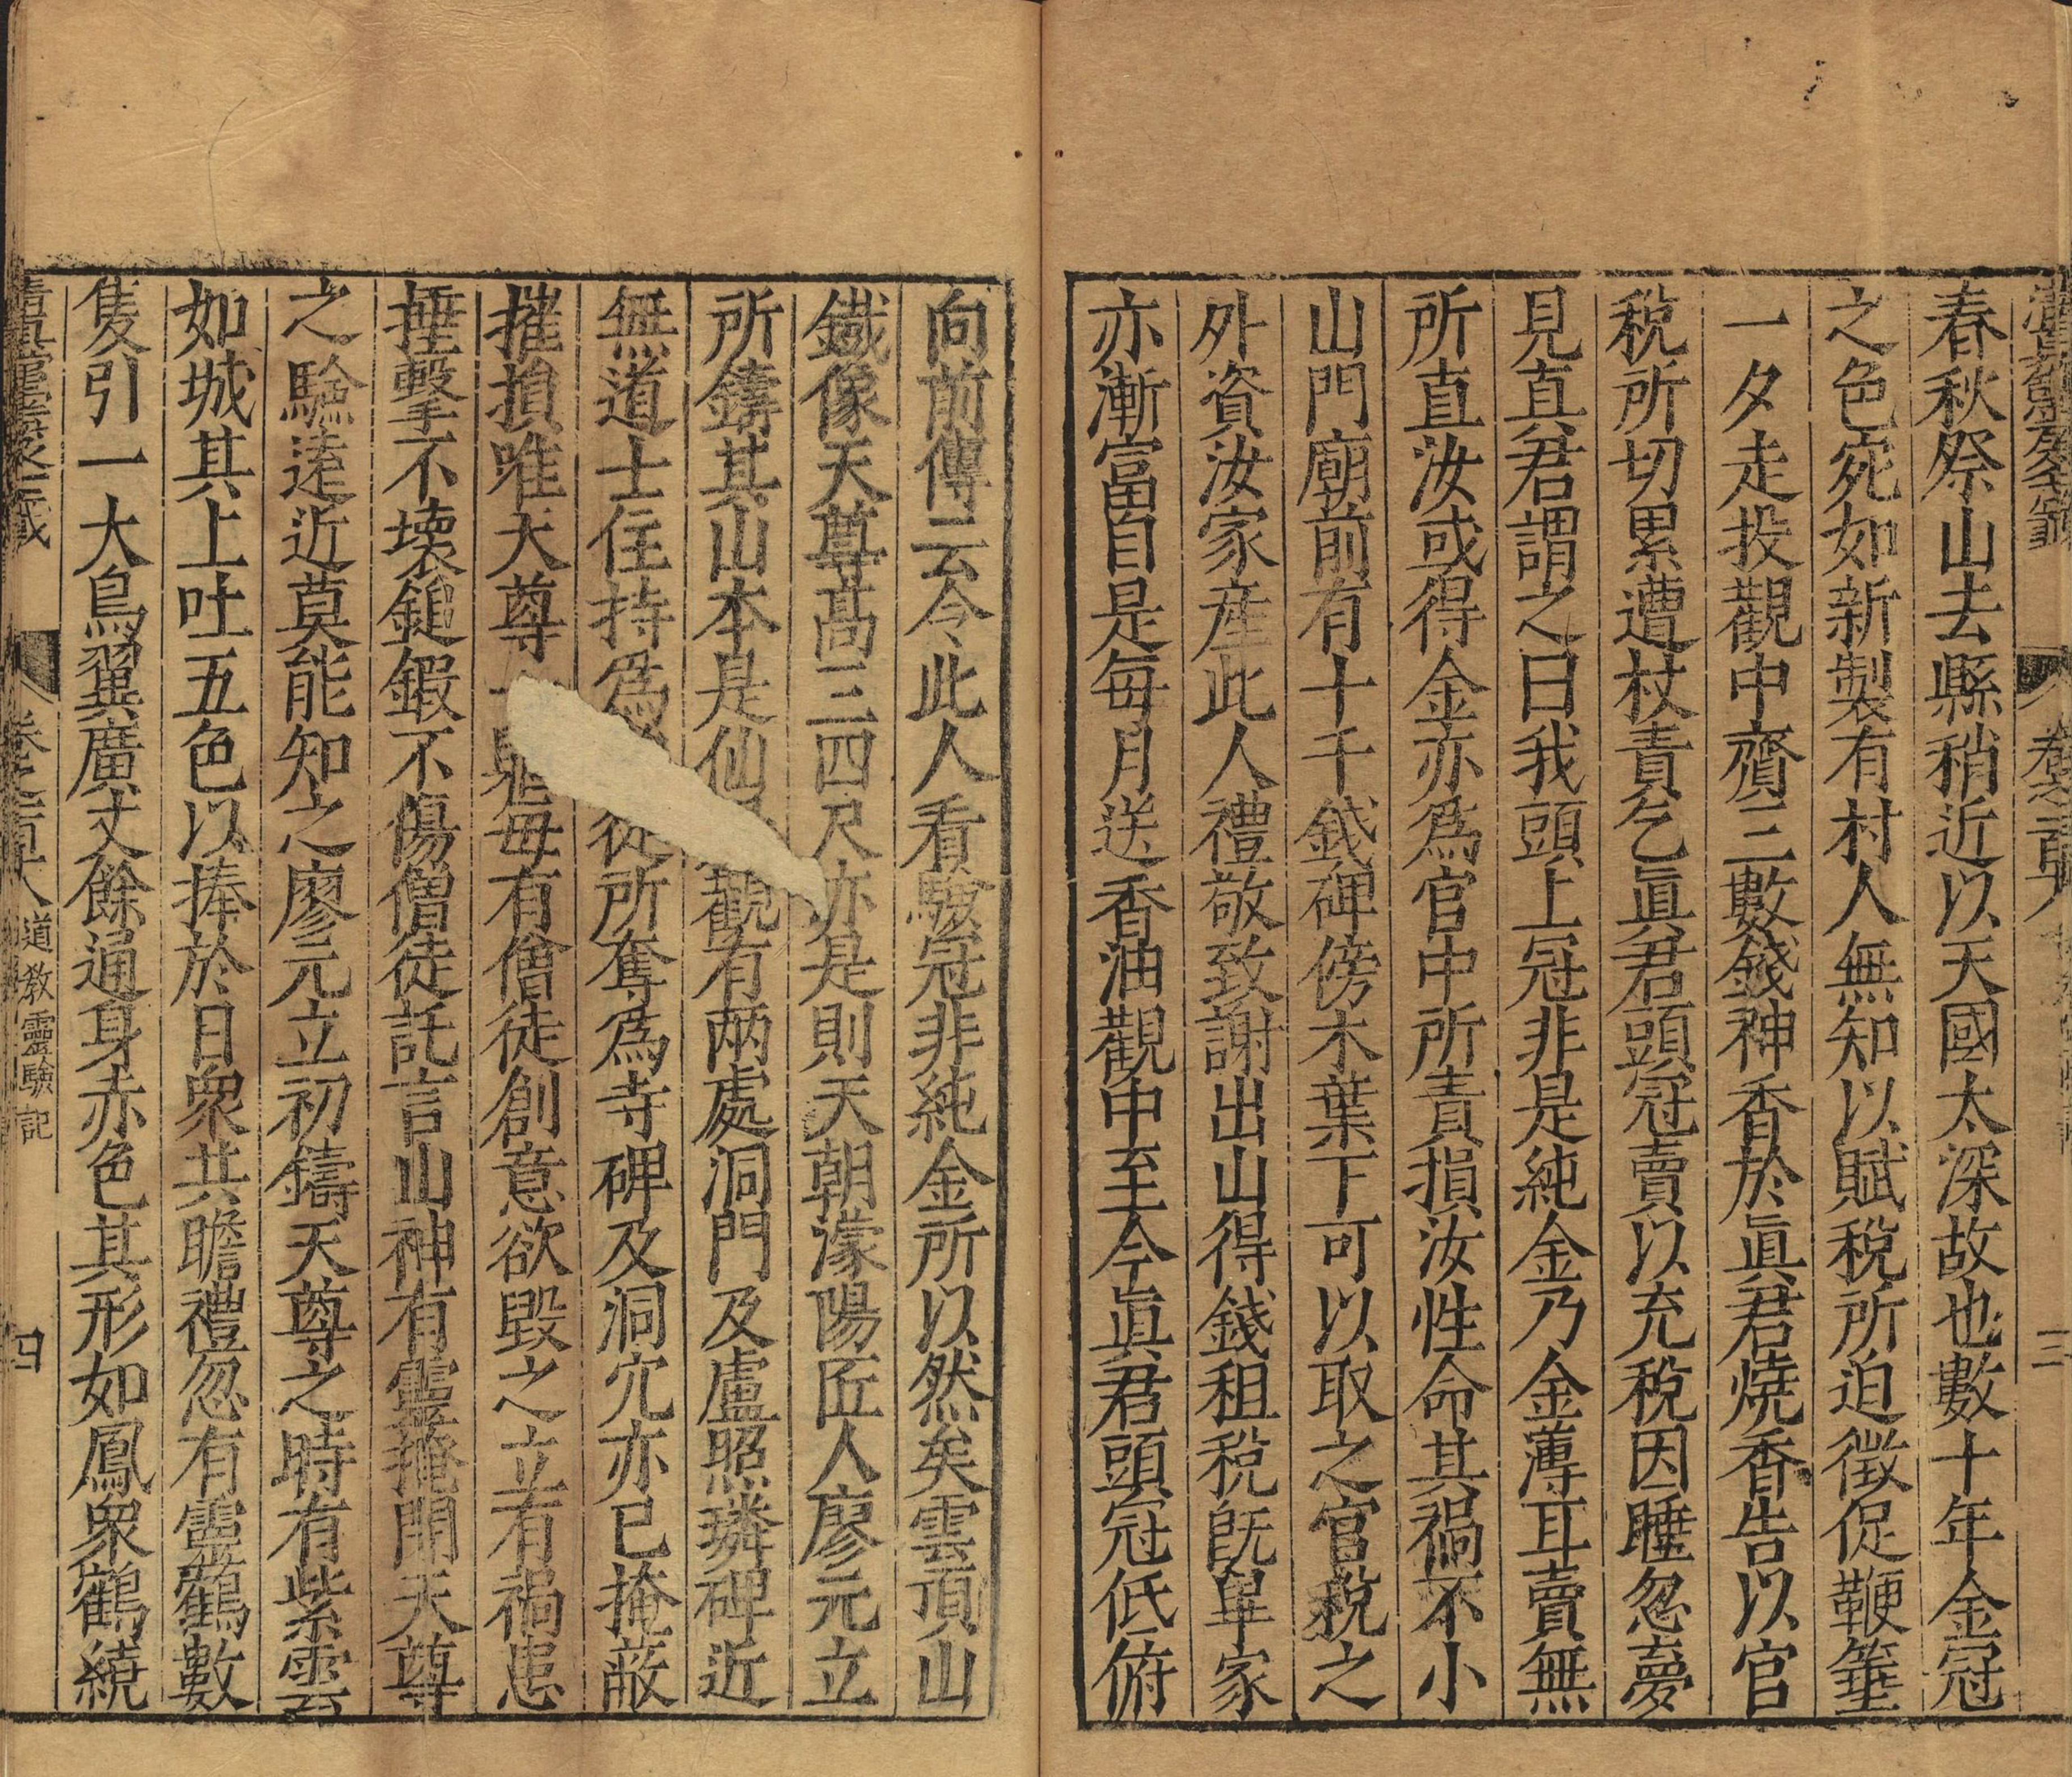 春秋祭山去縣稍近以天國太深故也數十年金冠
之色宛如新製有村人無知以賦稅所迫徵促鞭箠
一夕走投觀中齎三數錢神香於眞君燒香告以官
稅所切累遭杖責乞眞君頭冠賣以充稅因睡忽夢
見真君謂之曰我頭上冠非是純金乃金薄耳賣無
所直汝或得金亦爲官中所責損汝性命其禍不小
山門廟前有十千錢碑傍木葉下可以取之官稅之
外資汝家産此人禮敬致謝出山得錢租稅旣畢家
亦漸富自是每月送香油觀中至今眞君頭冠低俯
向前傳云今此人看驗冠非純金所以然矣雲頂山
鐵像天尊髙三四尺亦是則天朝濛陽匠人廖元立
所鑄其山本是仙觀有兩處洞門及盧照璘碑近
無道士住持爲從所奪爲寺碑及洞穴亦已掩蔽
摧損唯天尊每有僧徒創意欲毀之立有禍患
捶擊不壞鎚鍛不傷僧徒託言山神有靈掩閉天尊
之驗遠近莫能知之廖元立初鑄天尊之時有紫雲
如城其上吐五色以捧於日衆共瞻禮忽有靈鶴數
隻引一大鳥翼廣丈餘通身赤色其形如鳳衆鶴繞
道教靈驗記
四